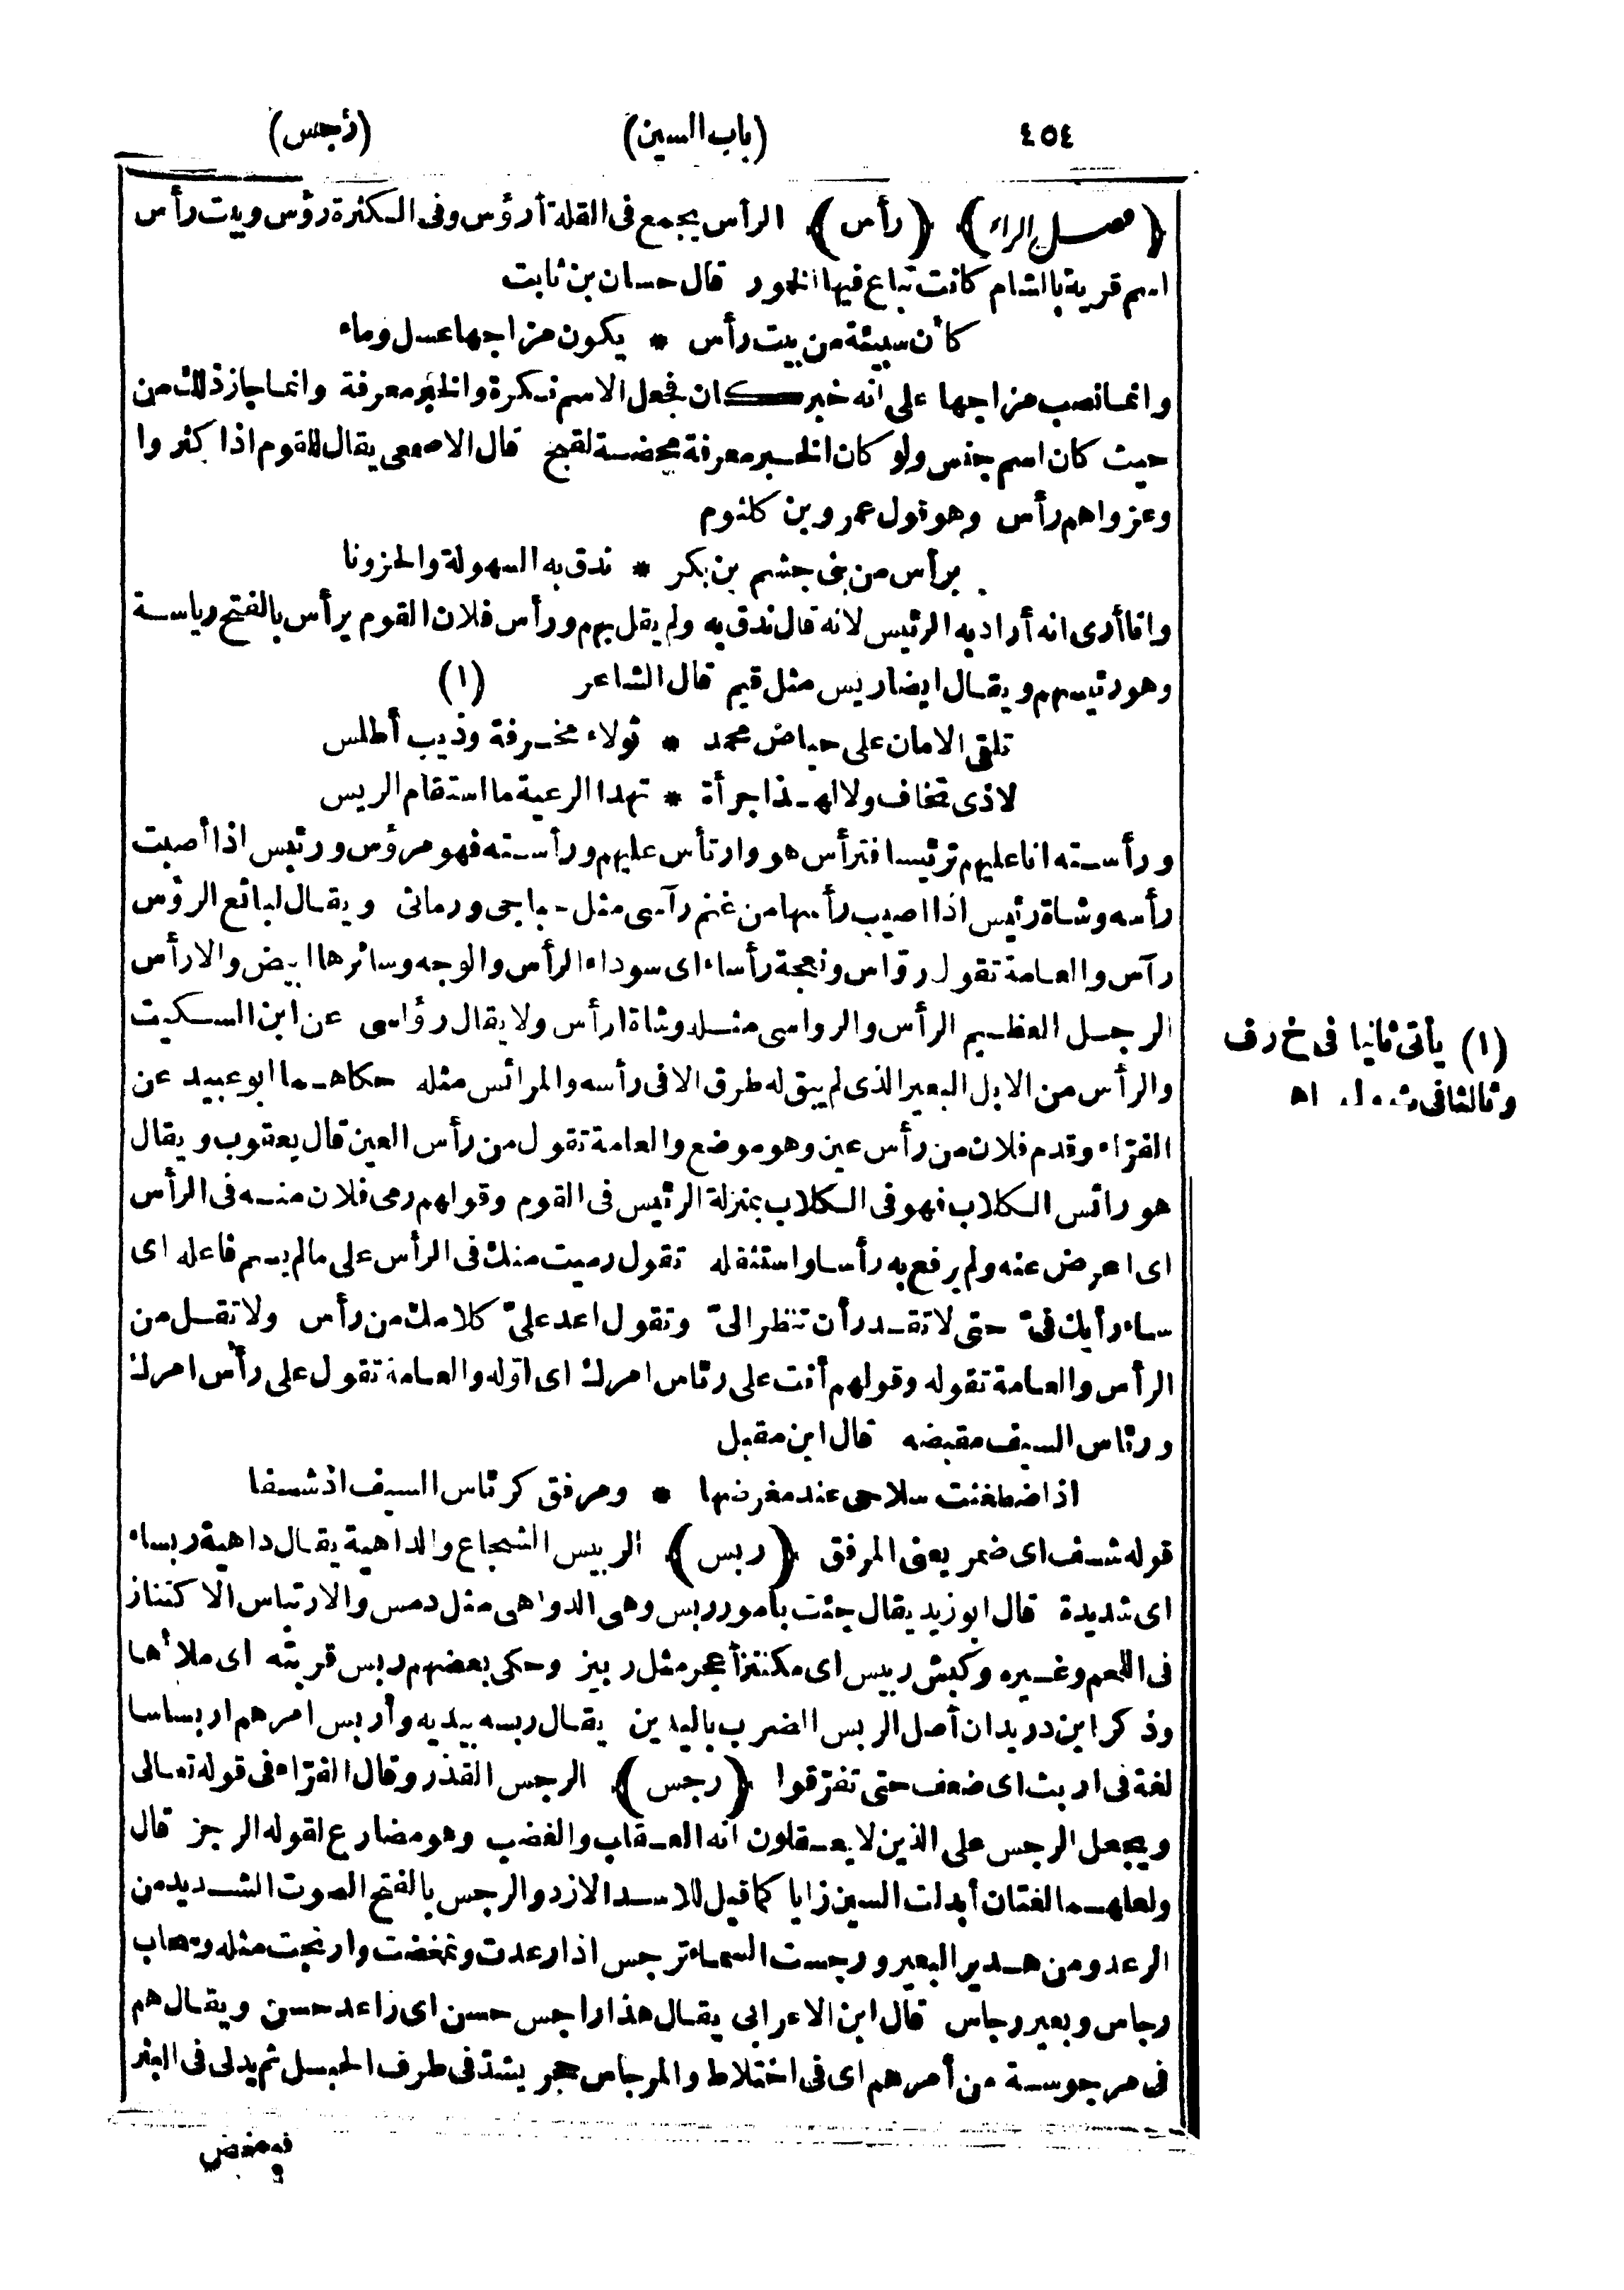 ٤٥٤
(باب السين)
(رجس)
﴿فصل الراء﴾ ﴿رأس﴾ الرأس يجمع فى القلة أرؤس وفى الكثرة رؤس وبيت رأس
اسم قرية بالشام كانت تباع فيها الخمور قال حسان بن ثابت
كأن سبيئة من بيت رأس * يكون مزاجها عسل وماء
وانما نصب مزاجها على انه خبر كان فجعل الاسم نكرة والخبر معرفة وانما جاز ذلك من
حيث كان اسم جنس ولو كان الخبر معرفة محضة لقبح قال الاصمعى يقال للقوم اذا كثروا
وعزوا هم رأس وهو قول عمرو بن كلثوم
برأس من بنى جشم بن بكر * ندق به السهولة والحزونا
وانا أرى انه أراد به الرئيس لانه قال ندق به ولم يقل بهم ورأس فلان القوم يرأس بالفتح رياسة
وهو رئيسهم ويقال ايضا ريس مثل قيم قال الشاعر (١)
تلقى الامان على حياض محمد * ثولاء مخرفة وذيب أطلس
لاذى تخاف ولا لهذا جرأة * تهدا الرعية ما استقام الريس
ورأسته انا عليهم ترئيسا فترأس هو وارتأس عليهم ورأسته فهو مرؤس ورئيس اذا أصبت
رأسه وشاة رئيس اذا اصيب رأسها من غنم رآسى مثل حباجى ورماثى ويقال لبائع الرؤس
رآس والعامة تقول رواس ونعجة رأساء اى سوداء الرأس والوجه وسائرها ابيض والارأس
الرجل العظيم الرأس والرواسى مثله وشاة ارأس ولا يقال رؤاسى عن ابن السكيت
والرأس من الابل البعير الذى لم يبق له طرق الا فى رأسه والمرائس مثله حكاهما ابو عبيد عن
الفرّاء وقدم فلان من رأس عين وهو موضع والعامة تقول من رأس العين قال يعقوب ويقال
هو رائس الكلاب فهو فى الكلاب بمنزلة الرئيس فى القوم وقولهم رمى فلان منه فى الرأس
اى اعرض عنه ولم يرفع به رأسا واستثقله تقول رميت منك فى الرأس على مالم يسم فاعله اى
ساء رأيك فىّ حتى لا تقدر أن تنظر الىّ وتقول اعد علىّ كلامك من رأس ولا تقل من
الرأس والعامة تقوله وقولهم أنت على رئاس امرك اى اوّله والعامة تقول على رأس امرك
ورئاس السيف مقبضه قال ابن مقبل
اذا اضطغنت سلاحى عند مغرضها * ومرفق كرئاس السيف اذ شسفا
قوله شسف اى ضمر يعنى المرفق ﴿ربس﴾ الربيس الشجاع والداهية يقال داهية ربساء
اى شديدة قال ابو زيد يقال جئت بأمور ربس وهى الدواهى مثل دمس والارتباس الاكتناز
فى اللحم وغيره وكبش ربيس اى مكتنز أعجر مثل ربيز وحكى بعضهم ربس قربته اى ملأها
وذكر ابن دريد ان أصل الربس الضرب باليدين يقال ربسه بيديه وأربس امرهم اربساسا
لغة فى اربث اى ضعف حتى تفرّقوا ﴿رجس﴾ الرجس القذر وقال الفرّاء فى قوله تعالى
ويجعل الرجس على الذين لا يعقلون انه العقاب والغضب وهو مضارع لقوله الرجز قال
ولعلهما لغتان أبدلت السين زايا كما قيل للاسد الازد والرجس بالفتح الصوت الشديد من
الرعد ومن هدير البعير ورجست السماء ترجس اذا رعدت وتمخضت وارتجست مثله وسحاب
رجاس وبعير رجاس قال ابن الاعرابى يقال هذا راجس حسن اى راعد حسن ويقال هم
فى مرجوسة من أمرهم اى فى اختلاط والمرجاس حجر يشدّ فى طرف الحبل ثم يدلى فى البئر
(١) يأتى ثانيا فى خ رف
وثالثا فى اه
فيمخض